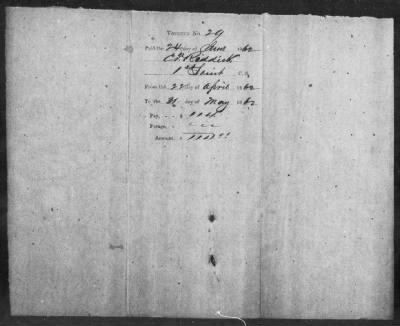 VOUCHER No. 29
Paid the 24 day of June 1862
C. P. Reddick
1st Lieut C.S.
From the 22 day of April 1862
To the 21 day of May 1862
Pay, - - $
Forage, "
Amount, "